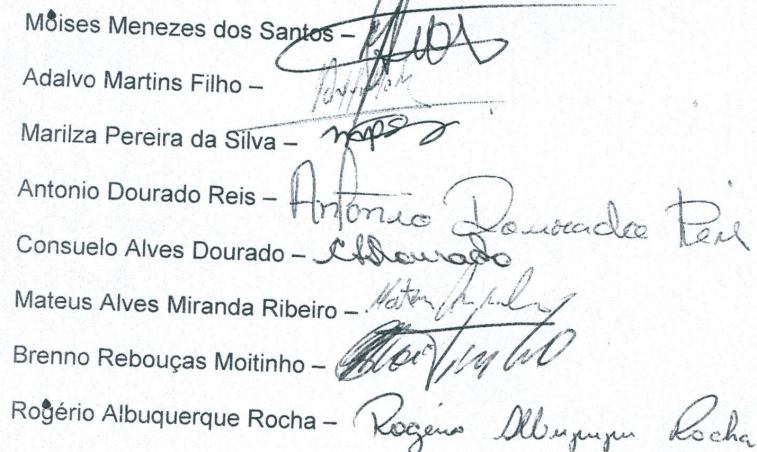 Moises Menezes dos Santos –
Adalvo Martins Filho –
Marilza Pereira da Silva – maps
Antonio Dourado Reis – Antonio Dourado Reis
Consuelo Alves Dourado – CADourado
Mateus Alves Miranda Ribeiro – Mateus
Brenno Rebouças Moitinho –
Rogério Albuquerque Rocha – Rogério Albuquerque Rocha